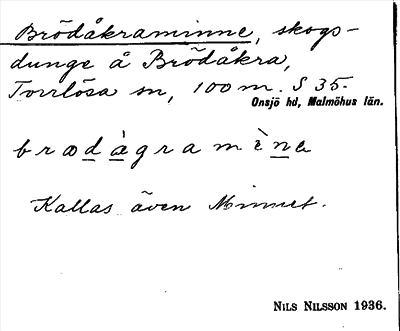 Brödåkraminne, skogs-
dunge å Brödåkra,
Torrlösa sn, 100 m. S 35.
Onsjö hd, Malmöhus län.
brødàgramìna
Kallas även Minnet.
NILS NILSSON 1936.